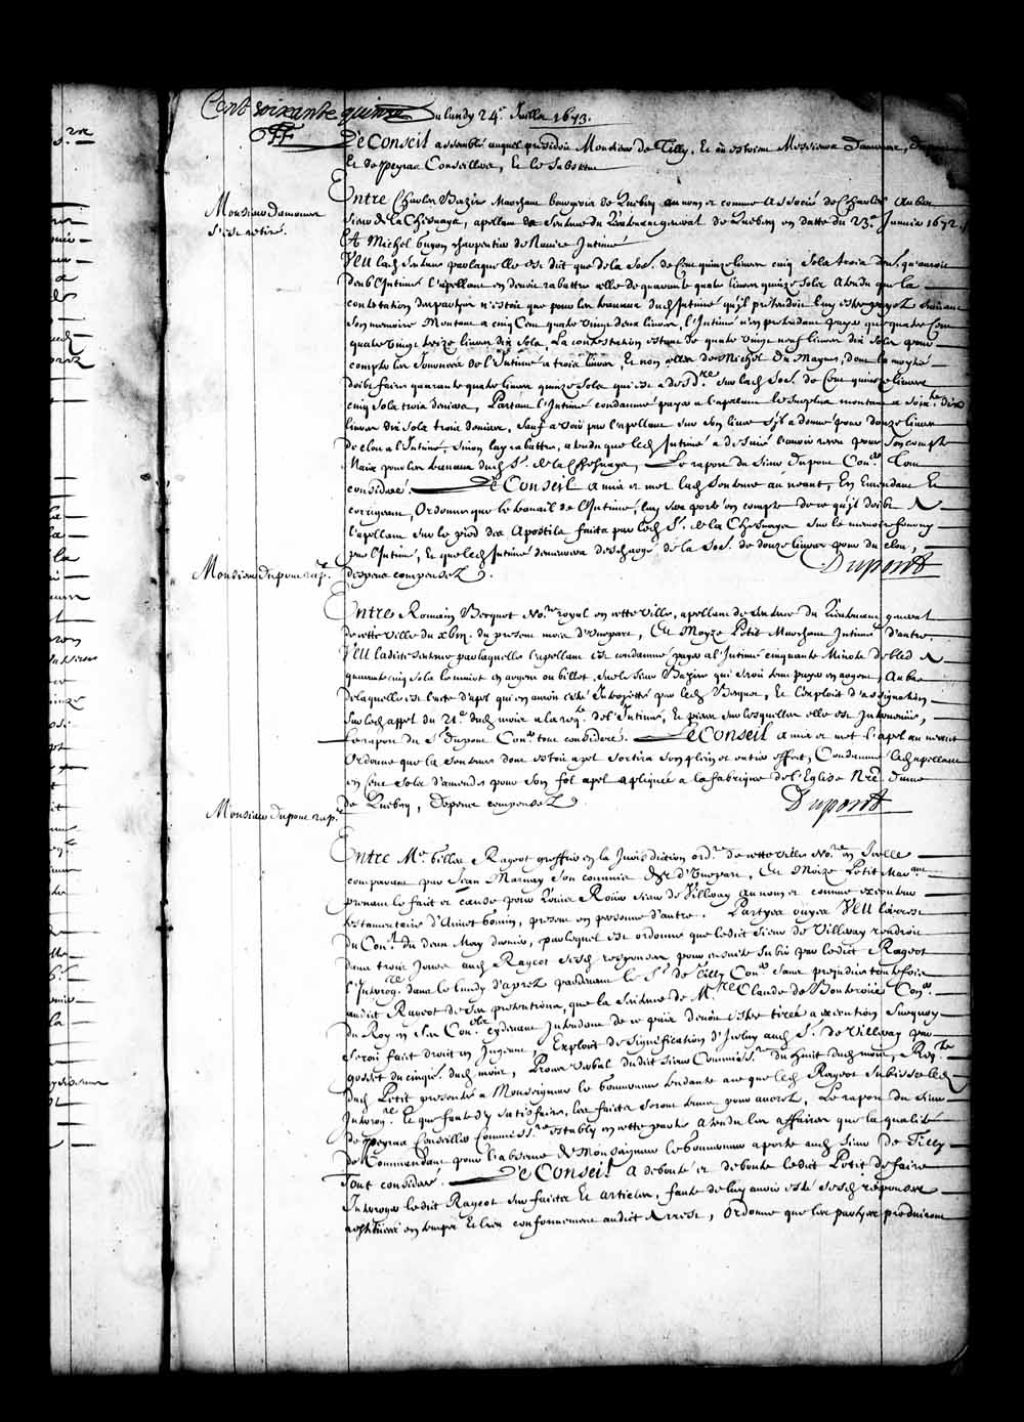 Cent soixante quinze
Du lundy 24.e Juillet 1673.
Le Conseil assemblé auquel presidoit Monsieur de Tilly, Et ou estoient Messieurs Damours, Dupont
Et de peyras Conseillers, Et le Substitut
Monsieur damours
s'est retiré.
Entre Charles Bazire Marchant bourgeois de Quebec au nom et comme Associé de Charles Aubert
sieur de la Chesnaye, apellant de Sentence du Lieutenant general de Quebec en datte du 23.e Janvier 1672.
Et Michel Guyon charpentier de Navire Intimé
Veu lad. Sentence par laquelle est dit que de la So.e de Cent quinze livres cinq Sols trois den.
doub l'Intimé l'apellant en devoit rabattre celle de quarante quatre livres quinze sols Attendu que la
contestation des partyes n'estoit que pour les travaux dud. Intimé qu'il pretendoit luy estre payez suivant
Son memoire Montant a cinq Cent quatre vingt deux livres, l'Intimé n'en pretendant payer que quatre Cent
quatre vingt treize livres dix sols, La contestation estant de quatre vingt neuf livres dix Sols pour
compter les Journées de l'Intimé a trois livres, Et non celles de Michel
doibt faire quarante quatre livres quinze Sols qui est a desd.re Sur lad. So.e de Cent quinze livres
cinq Sols trois deniers, Partant l'Intimé condamné payer a l'apellant le Surplus montant a soix.te dix
livres dix Sols trois deniers, Sauf a voir par l'apellant Sur Son livre s'il a donné pour douze livres
de clou a l'Intimé, Sinon luy rabattre, attendu que led. Intimé a desnié l'avoir receu pour Son compte
Mais pour les travaux dud. S.r de la Chesnaye, Le raport du Sieur Dupont Con.er Tout
consideré. Le Conseil a mis et met lad. Sentence au neant, En Emendant Et
corrigeant, Ordonne que le travail de l'Intimé, luy sera porté en compte de ce qu'il doibt a
l'apellant Sur le pied des Apostils faits par led. S.r de la Chesnaye Sur le memoire fourny
par l'Intimé, Et que led. Intimé demeurera deschargé de la So.e de douze livres pour du clou,
despens compensez.
Dupont
Monsieur dupont rap.r
Entre Romain Becquet No.re royal en cette ville, apellant de sentence du Lieutenant general
de cette ville du du present mois d'une part, Et Moyze Petit Marchant Intimé d'autre
Veu ladite Sentence par laquelle l'apellant est condamné payer a l'Intimé cinquante Minots de bled a
quarante cinq Sols le minot en argent ou billet, Sur le Sieur Bazire qui seroit tenu payer en argent, Au bas
de laquelle est l'acte d'apel qui en auroit esté Interjetté par led. Becquet, Et l'exploit d'assignation
Sur led. appel du 21.e dud. mois a la req.te de l'Intimé, Et pieces Sur lesquelles elle est Intervenüe,
Le raport du S.r dupont Con.er tout consideré. Le Conseil a mis et met l'apel au neant
Ordonne que la Sentence dont estoit apel sortira Son plein et entier effect, Condamne led. apellant
en Cent Sols d'amende pour Son fol apel apliquée a la fabrique de l'Eglise N.re Dame
de Quebec, despens compensez
Dupont
Monsieur dupont rap.r
Entre M.e Gilles Rageot greffier en la Jurisdiction ord.re de cette ville No.re en Icelle
comparant par Jean Marnay Son commis d'une part, Et Moize Petit Mar.ant
prenant le fait et cause pour Louis Roüer Sieur de Villeray au nom et comme executeur
testamentaire d'Aimet bonin, present en personne d'autre. Partyes ouyes Veu l'arrest
du Con.l du deux May dernier, par lequel est ordonné que ledit Sieur de Villeray rendroit
dans trois Jours aud. Rageot sesd. responses pour ensuite Subir par ledit Rageot
l'Interog.re dans le lundy d'aprez pardevant le S.r de Tilly Con.er Sans prejudice toutesfois
audit Rageot de ses pretentions, que la Sentence de M.re Claude de Bouteroüe Con.er
du Roy en Ses Con.els cydevant Intendant de ce païs devoit estre tirée a execution Surquoy
Seroit fait droit en Jugeant, Exploit de Signification d'Iceluy aud. S.r de Villeray par
gosset du cinqui.e dud. mois, Proces verbal dudit Sieur Commiss.re du huit dud. mois, Req.te
dud. Petit presentée a Monseigneur le Gouverneur tendante a ce que led. Rageot Subisse led.
Interog.re Et que faute d'y Satisfaire, les faits Seront tenus pour averez, Le raport du Sieur
de peyras Conseiller Commiss.re estably en cette partie Attendu les affaires que la qualité
de Commandant pour l'absence de Monseigneur le Gouverneur aporte aud. Sieur de Tilly
Tout consideré. Le Conseil a debouté et deboute ledit Petit de faire
Interoger ledit Rageot Sur faits Et articles, faute de luy avoir esté Sesd. responses
en temps Et lieu conformement audit Arrest, Ordonne que les partyes produiront